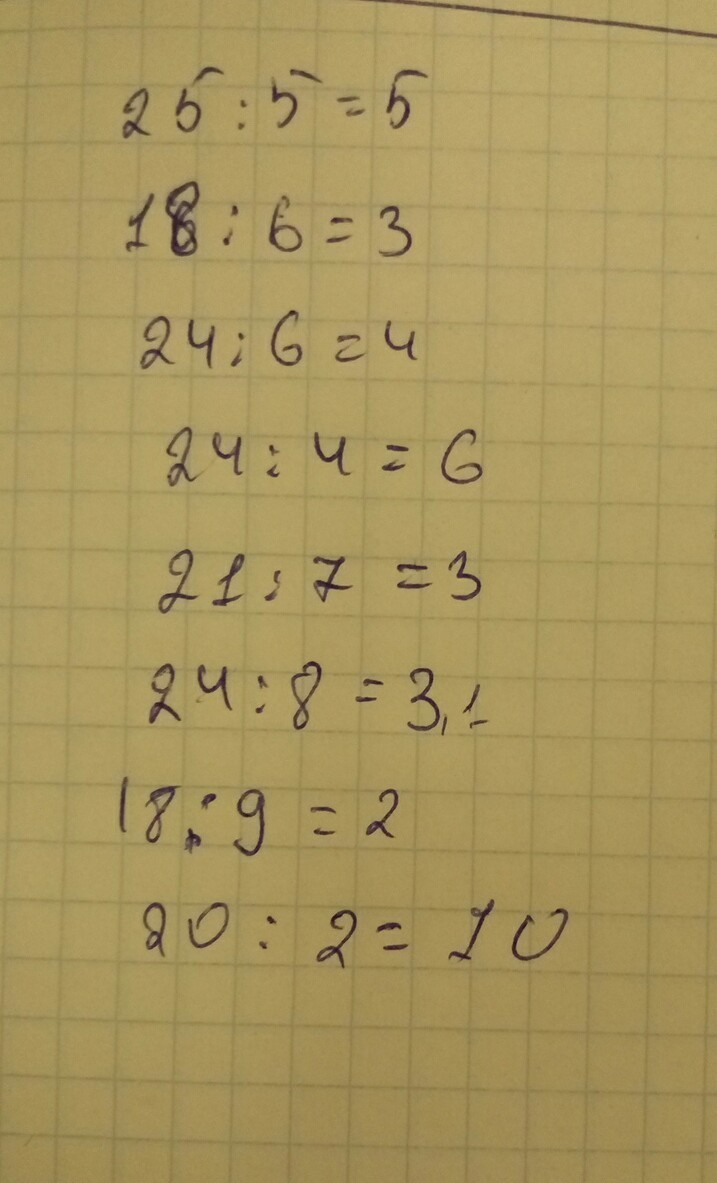 25:5=5
18:6=3
24:6=4
24:4=6
21:7=3
24:8=3,1
18:9=2
20:2=10